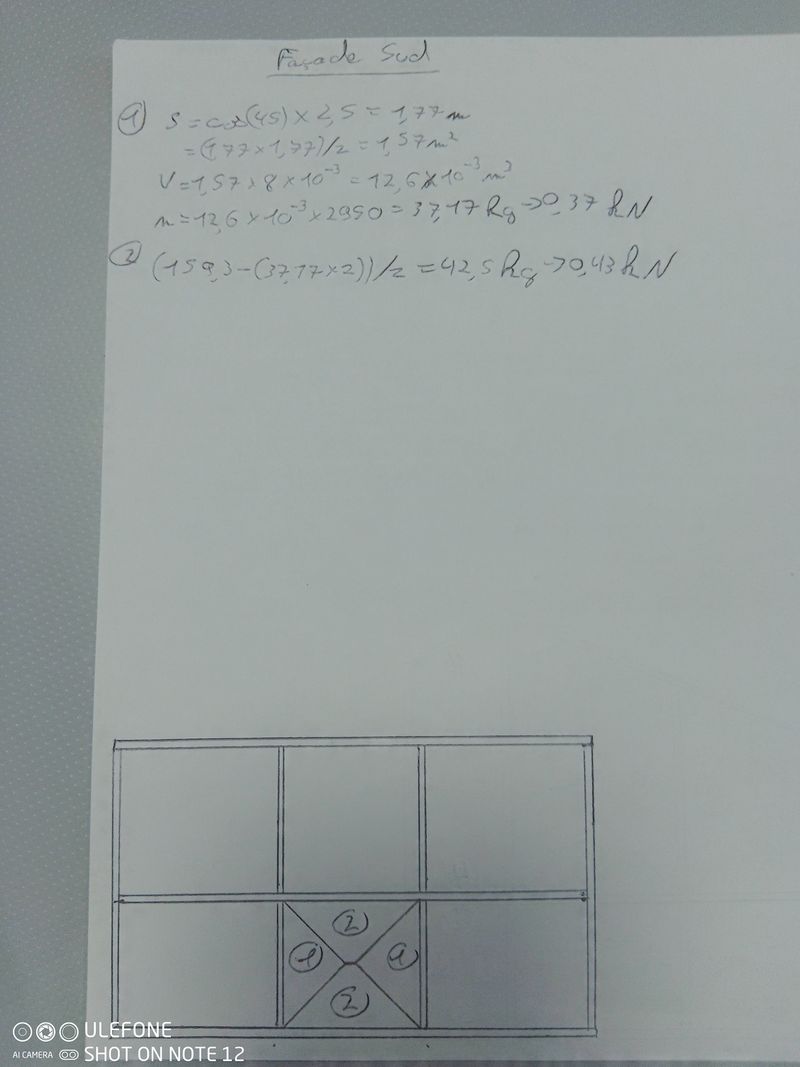 Façade Sud
① S = cos(45) × 2,5 = 1,77 m
= (1,77 × 1,77)/2 = 1,57 m²
V = 1,57 × 8 × 10⁻³ = 12,6 × 10⁻³ m³
m = 12,6 × 10⁻³ × 2950 = 37,17 kg → 0,37 kN
② (159,3 - (37,17 × 2))/2 = 42,5 kg → 0,43 kN
②
① ①
②
ULEFONE
AI CAMERA SHOT ON NOTE 12